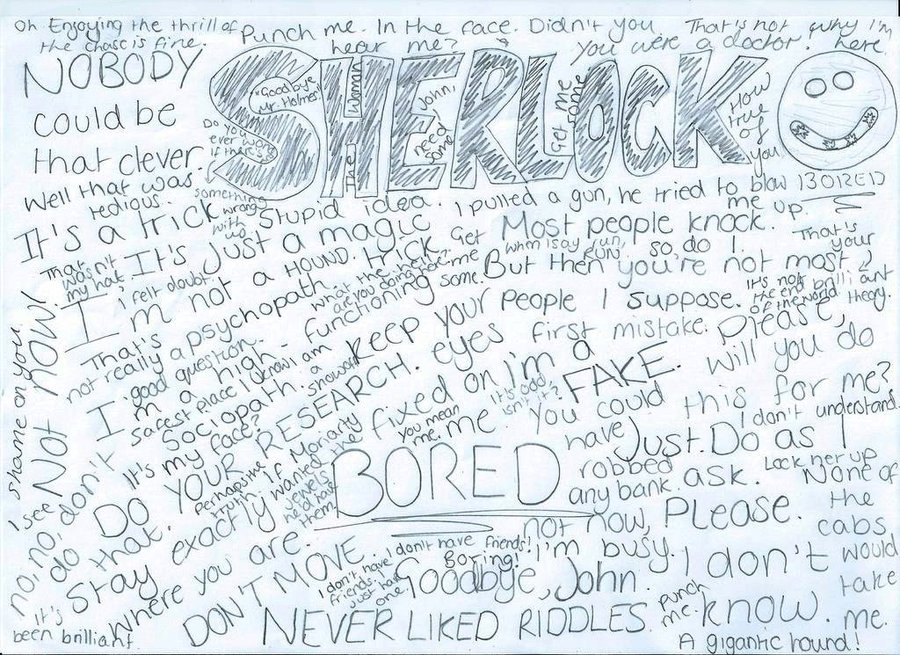 Oh Enjoying the thrill of
the chase is fine.
Punch me. In the face. Didn't you
hear me?
That's not why I'm
here.
You were a doctor!
NOBODY
could be
that clever
SHERLOCK
"Goodbye
Mr Holmes"
The Woman
John,
need
some
Get me
some
How
true
of
you
Do you
ever wonder
if there's
something
wrong
with
us
Well that was
tedious.
BORED
Stupid idea.
I pulled a gun, he tried to blow
me up.
It's a trick
It's just a magic
trick
Most people knock.
so, do I.
But then you're not most
people I suppose.
when I say run,
RUN.
That's
your
theory.
Get
me
some.
That
wasn't
my hat
I felt doubt.
I'm not a HOUND.
what the hell
are you doing
It's not
the end
of the world
brilliant
That's
not really a psychopath
good question.
I'm a high-functioning
Sociopath.
safest place I know
I am
a
showoff
keep your
eyes
fixed on
me
first mistake.
Please,
will you do
this for me?
I'm a
FAKE.
It's odd
isn't it?
you mean
me.
You could
have
robbed
any bank.
I don't understand.
Just. Do as I
ask.
Lock her up
shame on you
NOT NOW!
I see
no, no, don't
do that.
It's my face?
DO YOUR RESEARCH.
perhaps
truth
if Moriarty
wanted the
jewels
he'd have
them.
Stay exactly
where you are.
BORED
None of
the
cabs
would
take
me.
not now,
I'm busy.
Please.
I don't have friends!
boring!
I don't have
friends.
just have
one.
DON'T MOVE.
Goodbye, John.
I don't
know.
It's
been brilliant
NEVER LIKED RIDDLES.
Punch
me.
A gigantic hound!